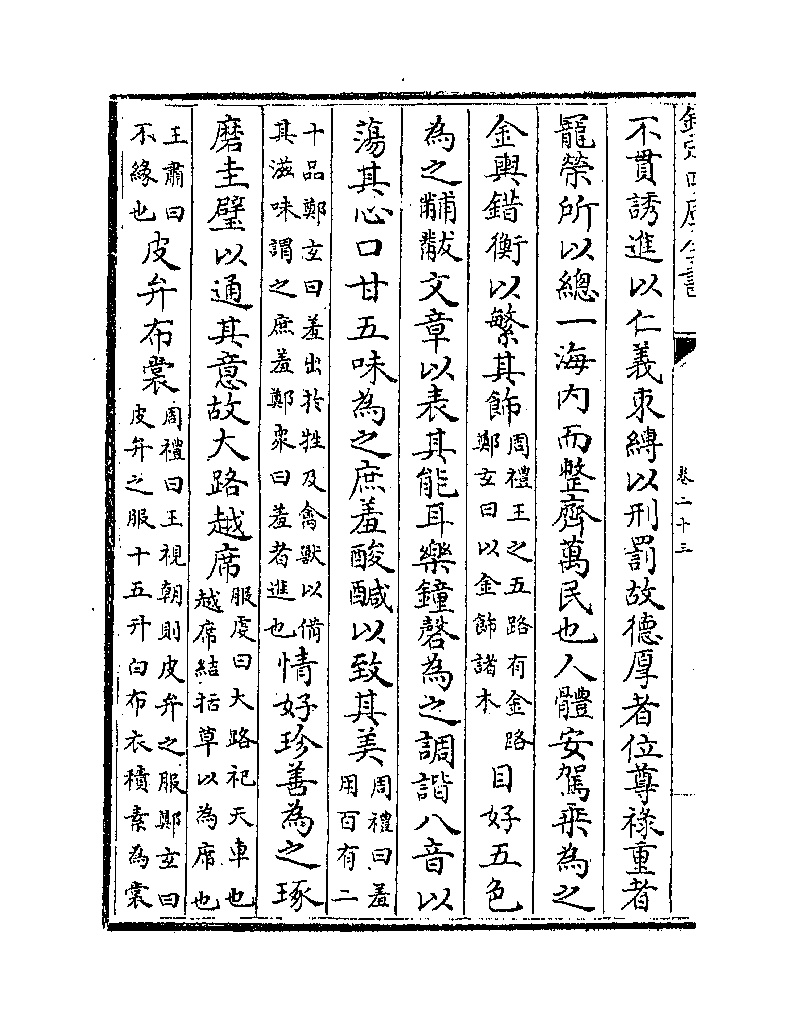 欽定四庫全書
卷二十三
不貫誘進以仁義束縛以刑罰故德厚者位尊祿重者
寵榮所以總一海内而整齊萬民也人體安駕乗為之
金輿錯衡以繁其飾周禮王之五路有金路鄭玄曰以金飾諸本目好五色
為之黼黻文章以表其能耳樂鐘磬為之調諧八音以
蕩其心口甘五味為之庶羞酸鹹以致其美周禮曰羞用百有二
十品鄭玄曰羞出於牲及禽獸以備其滋味謂之庶羞鄭衆曰羞者進也情好珍善為之琢
磨圭璧以通其意故大路越席服虔曰大路祀天車也越席結括草以為席也
王肅曰不緣也皮弁布裳周禮曰王視朝則皮弁之服鄭玄曰皮弁之服十五升白布衣積素為裳